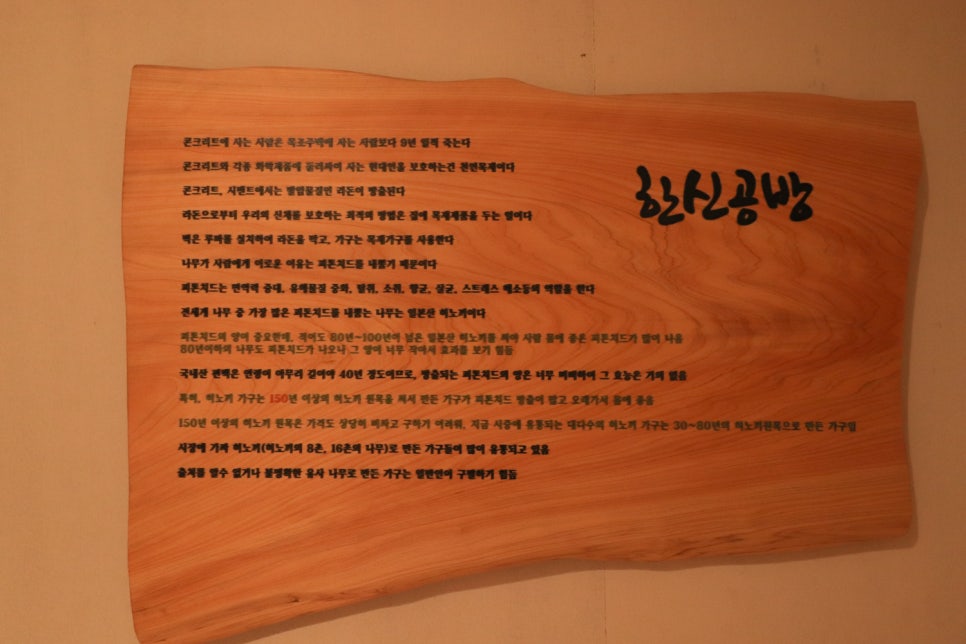 한신공방
콘크리트에 사는 사람은 목조주택에 사는 사람보다 9년 일찍 죽는다
콘크리트와 각종 화학제품에 둘러싸이 사는 현대인을 보호하는건 천연목재이다
콘크리트, 시멘트에서는 발암물질인 라돈이 방출된다
라돈으로부터 우리의 신체를 보호하는 최적의 방법은 집에 목재제품을 두는 일이다
벽은 루바를 설치하여 라돈을 막고, 가구는 목재가구를 사용한다
나무가 사람에게 이로운 이유는 피톤치드를 내뿜기 때문이다
피톤치드는 면역력 증대, 유해물질 중화, 탈취, 소취, 항균, 살균, 스트레스 해소등의 역할을 한다
전세계 나무 중 가장 많은 피톤치드를 내뿜는 나무는 일본산 히노끼이다
피톤치드의 양이 중요한데, 적어도 80년~100년이 넘은 일본산 히노끼를 써야 사람 몸에 좋은 피톤치드가 많이 나옴
80년이하의 나무도 피톤치드가 나오나 그 양이 너무 작아서 효과를 보기 힘듦
국내산 편백은 연령이 아무리 길어야 40년 정도이므로, 방출되는 피톤치드의 양은 너무 미미하여 그 효능은 거의 없음
특히, 히노끼 가구는 150년 이상의 히노끼 원목을 써서 만든 가구가 피톤치드 방출이 많고 오래가서 몸에 좋음
150년 이상의 히노끼 원목은 가격도 상당히 비싸고 구하기 어려워, 지금 시중에 유통되는 대다수의 히노끼 가구는 30~80년의 히노끼원목으로 만든 가구임
시장에 가짜 히노끼(히노끼의 8촌, 16촌의 나무)로 만든 가구들이 많이 유통되고 있음
출처를 알수 없거나 불명확한 유사 나무로 만든 가구는 일반인이 구별하기 힘듦